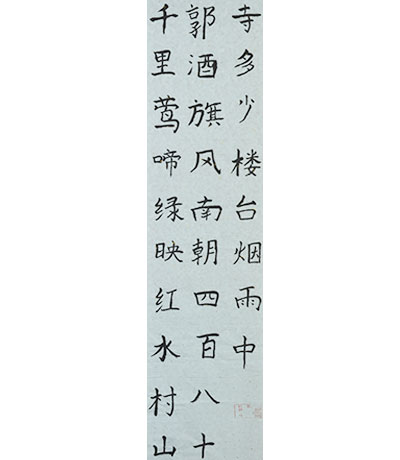 千里莺啼绿映红水村山
郭酒旗风南朝四百八十
寺多少楼台烟雨中